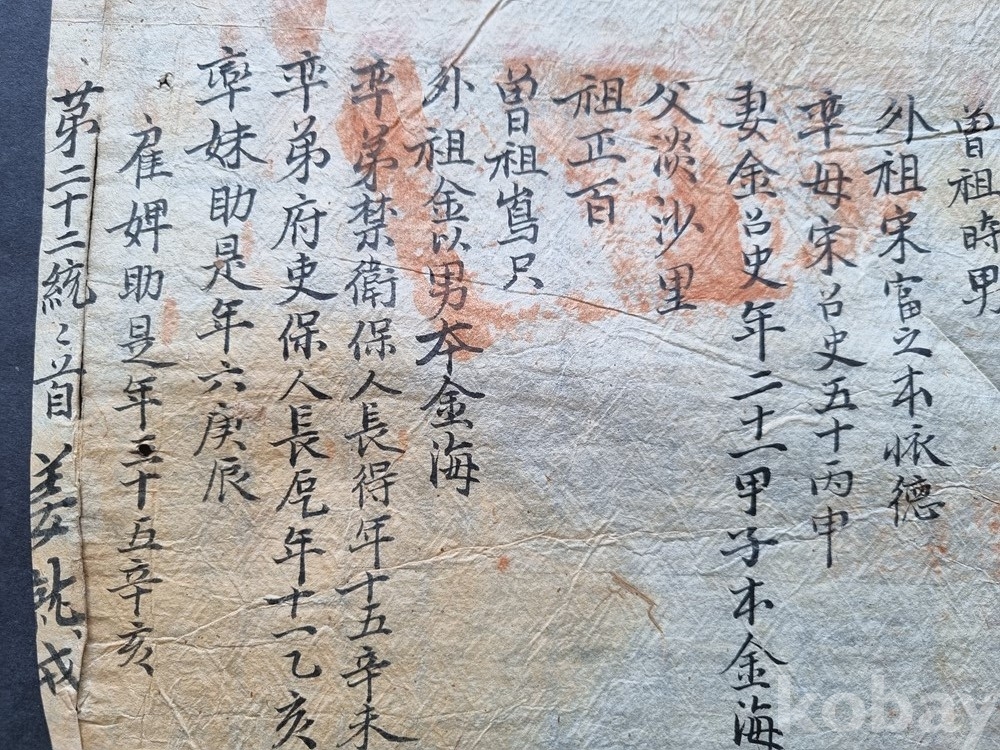 曽祖時男
外祖宋富之本懷德
率母宋召史五十丙申
妻金召史年二十一甲子本金海
父淡沙里
祖正百
曽祖鳥只
外祖金以男本金海
率弟禁衛保人長得年十五辛未
率弟府吏保人長厖年十一乙亥
率妹助是年六庚辰
雇婢助是年三十五辛亥
第二十二統〻首姜戒
kobay